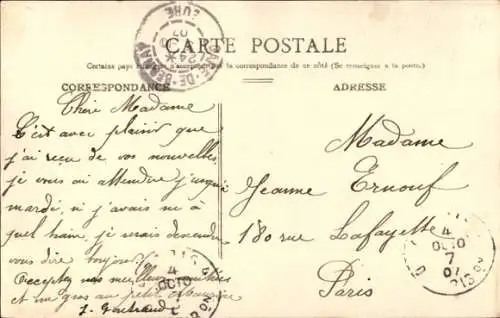 CARTE POSTALE
Certains pays étrangers n'acceptent pas la correspondance de ce côté (Se renseigner à la poste.)
CORRESPONDANCE
Chère Madame
C'est avec plaisir que
j'ai recu de vos nouvelles,
je vous ai attendue jusqu'a
mardi, si j'avais su à
quel train, je serais descendue
vous dire toujours
Acceptez nos meilleures amitiés
et un gros au petit Maurice
ADRESSE
Madame
Jeanne Ernouf
180 rue Lafayette
Paris
4
OCTO
7
07
4
OCTO